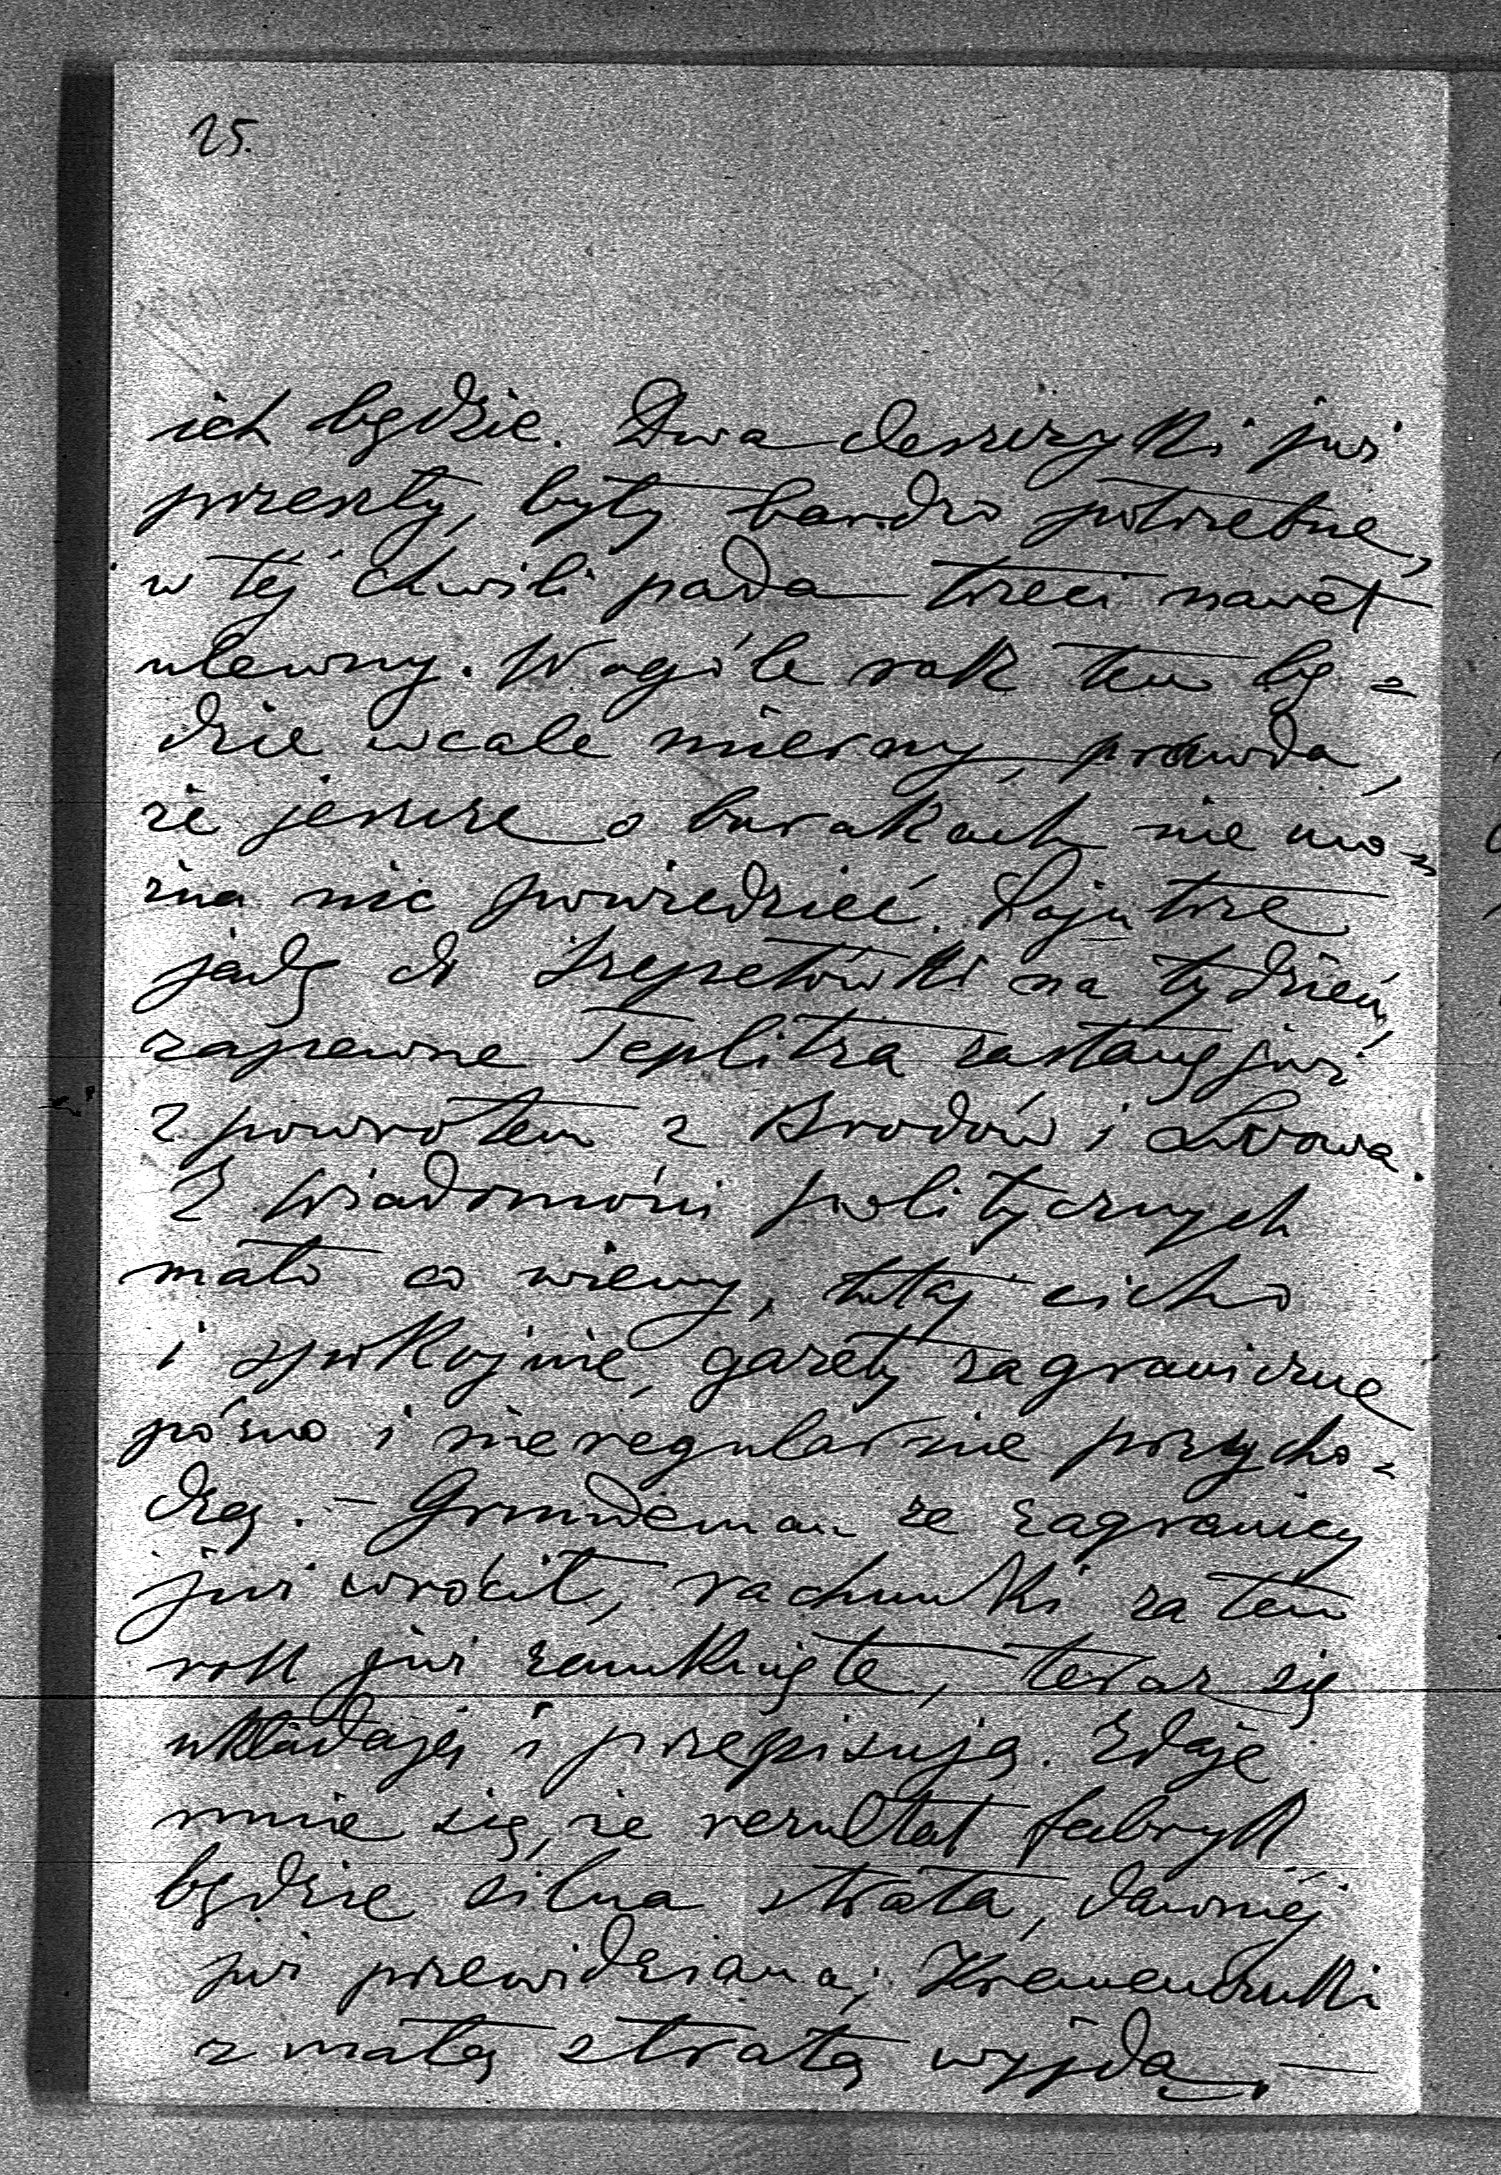 25.
ich będzie. Dwa deszczyki już
przeszły, były bardzo potrzebne,
w tej chwili pada trzeci nawet
ulewny. Wogóle rok ten bę=
dzie wcale mierny, prawda,
że jeszcze o burakach nie mo=
żna nic powiedzieć. Pojutrze
jadę do Szepetówki na tydzień,
zapewne Teplitza zastanę już
z powrotem z Brodów i Lwowa.
Z wiadomości politycznych
mało co wiemy, tutaj cicho
i spokojnie, gazety zagraniczne
późno i nieregularnie przycho=
dzą. – Grundeman ze zagranicy
już wrócił, rachunki za ten
rok już zamknięte, teraz się
układają i przepisują. Zdaje
mnie się, że rezultat fabryk
będzie silna strata, dawniej
już przewidziana; Kremenczuki
z małą stratą wyjdą. –